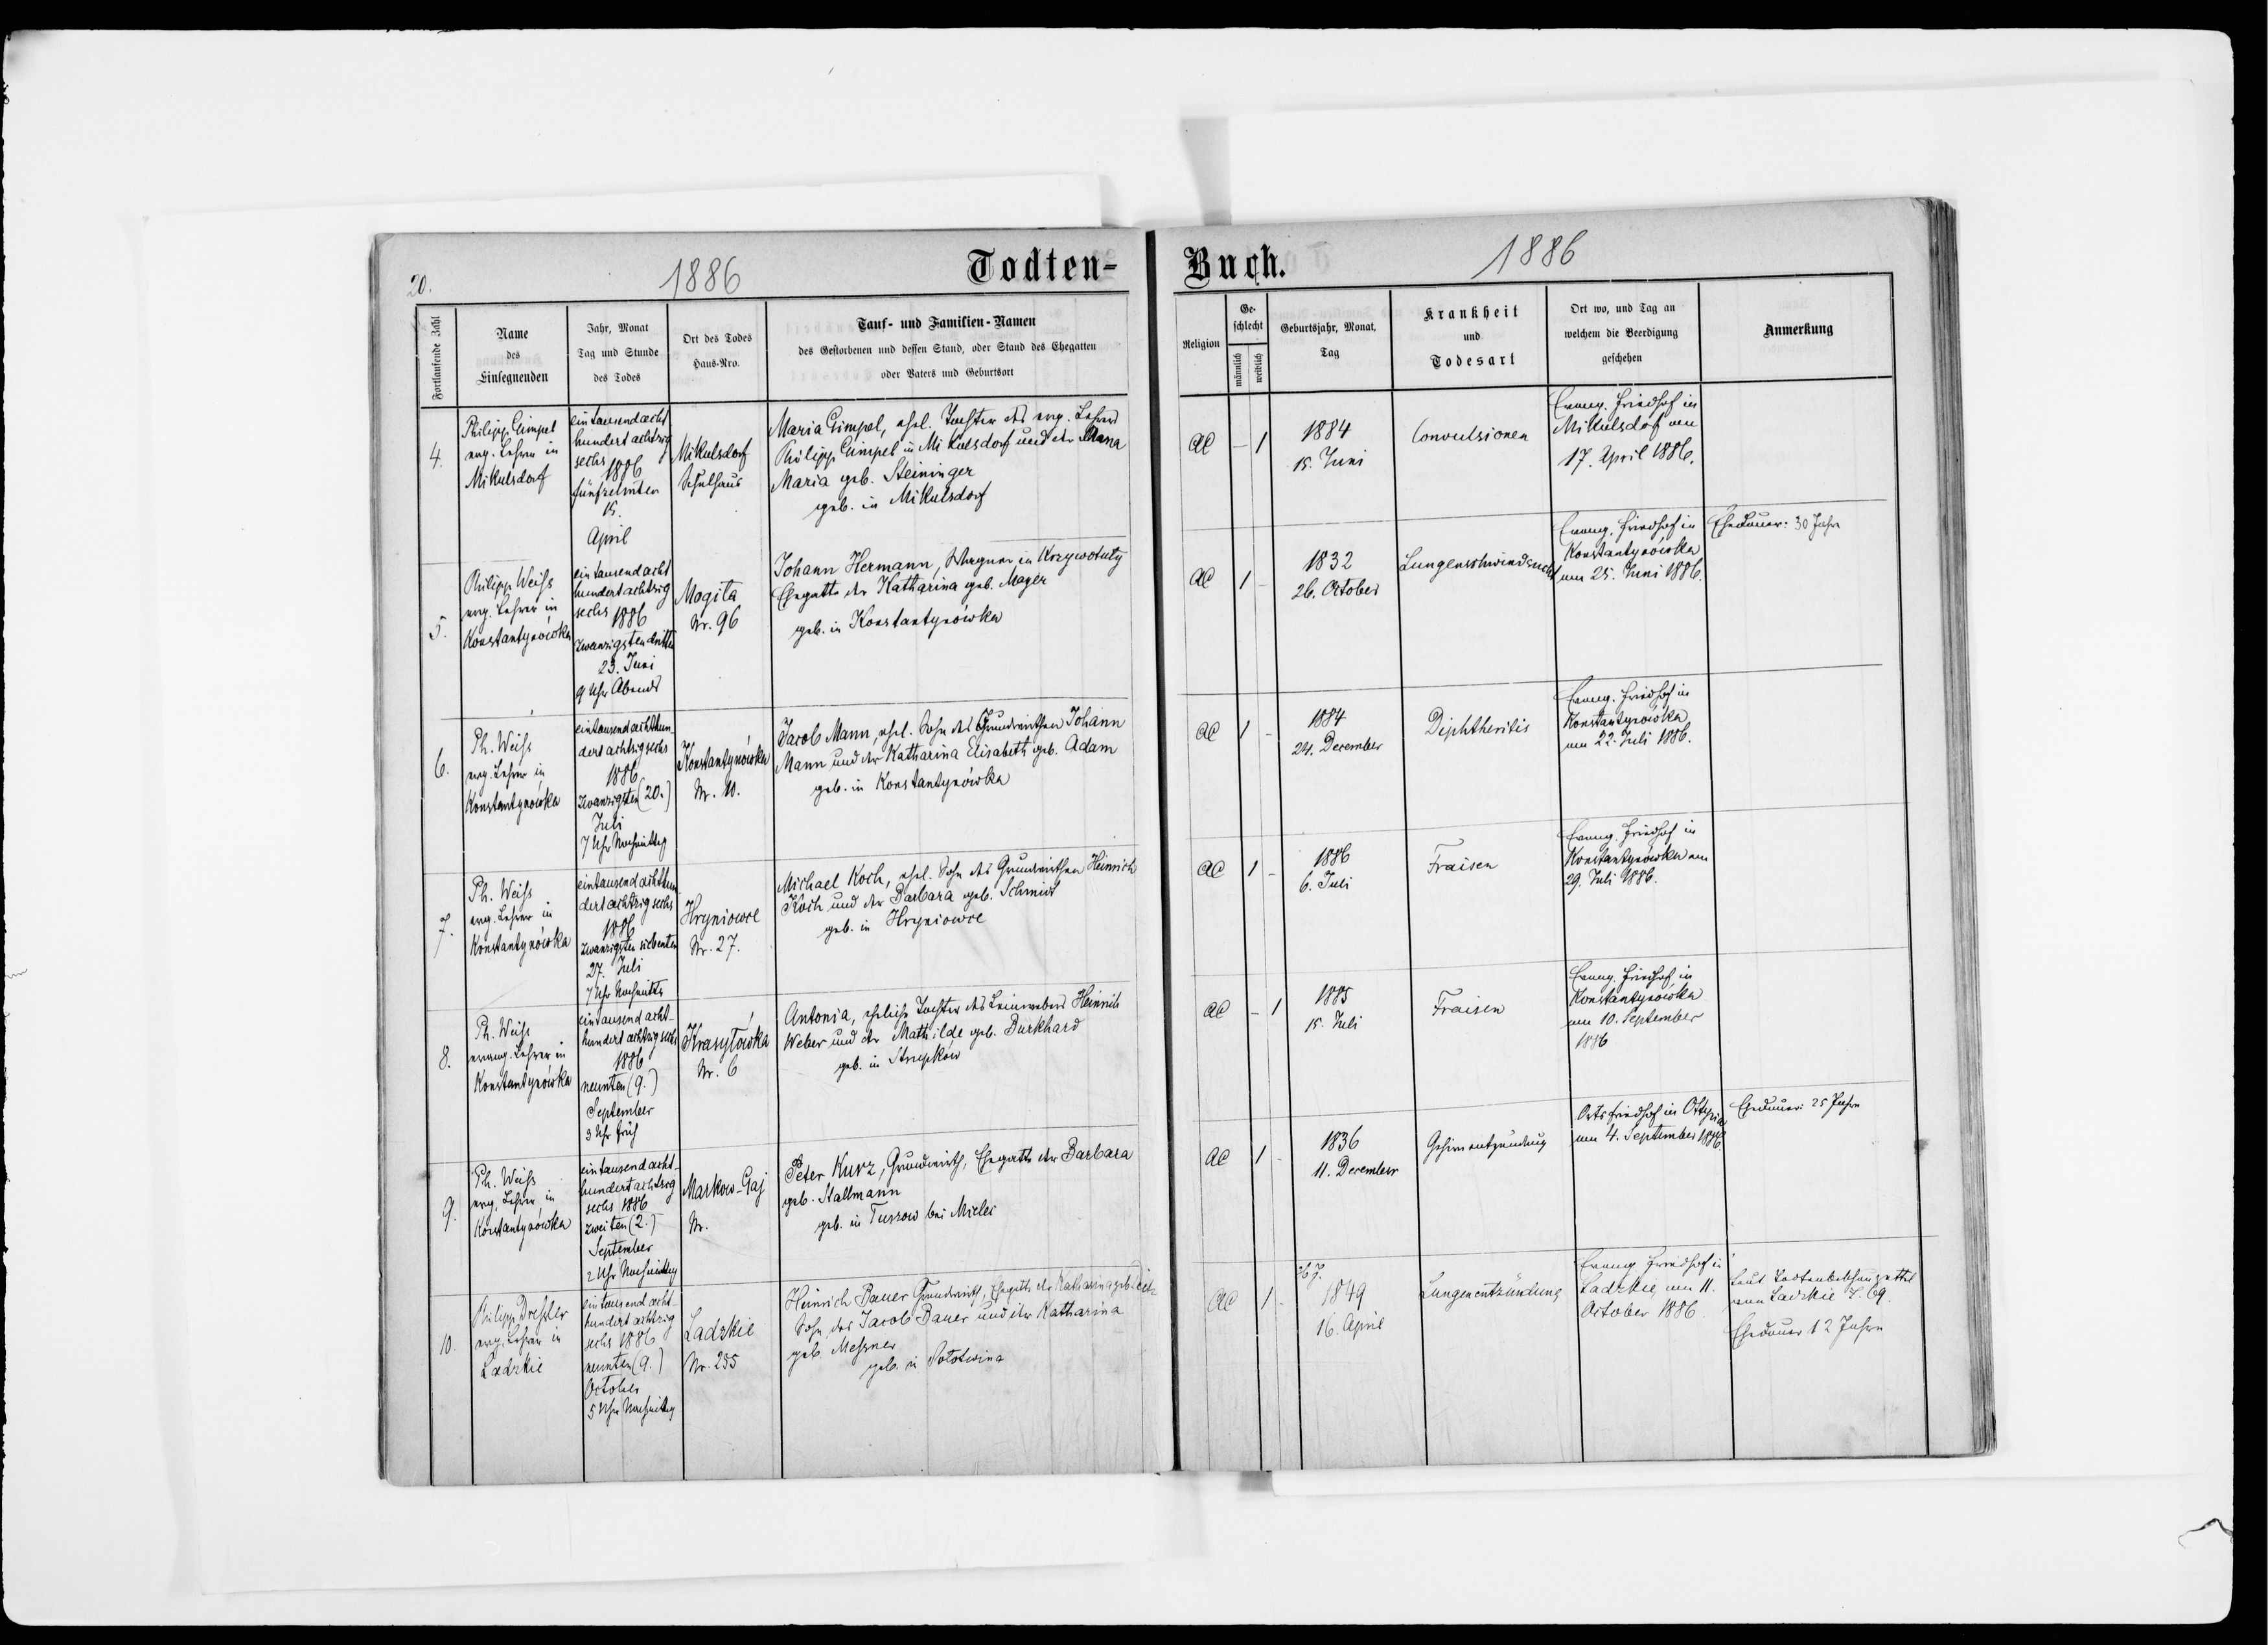 20.
1886
Todten-
Buch.
1886
Fortlaufende Zahl
Name
des
Einsegnenden
Jahr, Monat
Tag und Stunde
des Todes
Ort des Todes
Haus-Nro.
Tauf- und Familien-Namen
des Gestorbenen und dessen Stand, oder Stand des Ehegatten
oder Vaters und Geburtsort
Religion
Ge-
schlecht
männlich
weiblich
Geburtsjahr, Monat,
Tag
Krankheit
und
Todesart
Ort wo, und Tag an
welchem die Beerdigung
geschehen
Anmerkung
4.
Philipp Gimpel
evg. Lehrer in
Mikulsdorf
eintausendacht
hundert achtzig
sechs
1886
fünfzehnten
15.
April
Mikulsdorf
Schulhaus
Maria Gimpel, ehel. Tochter des evg. Lehrers
Philipp Gimpel in Mikulsdorf und der Anna
Maria geb. Steininger
geb. in Mikulsdorf
AC
- 1
1884
15. Juni
Convulsionen
Evang. Friedhof in
Mikulsdorf am
17. April 1886.
5.
Philipp Weiss
evg. Lehrer in
Konstantynówka
eintausendacht
hundertachtzig
sechs 1886
zwanzigsten dritten
23. Juni
9 Uhr Abends
Mogiła
Nr. 96
Johann Hermann, Wagner in Krzywotuły
Ehegatte der Katharina geb. Mager
geb. in Konstantynówka
AC
1 -
1832
26. October
Lungenschwindsucht
Evang. Friedhof in
Konstantynówka
am 25. Juni 1886.
Ehedauer: 30 Jahre
6.
Ph. Weiss
evg. Lehrer in
Konstantynówka
eintausendachthun-
dert achtzigsechs
1886
zwanzigsten (20.)
Juli
7 Uhr Nachmittag
Konstantynówka
Nr. 10.
Jacob Mann, ehel. Sohn des Grundwirthen Johann
Mann und der Katharina Elisabeth geb. Adam
geb. in Konstantynówka
AC
1 -
1884
24. December
Diphtheritis
Evang. Friedhof in
Konstantynówka
am 22. Juli 1886.
7.
Ph. Weiss
evg. Lehrer in
Konstantynówka
eintausendachthun
dertachtzigsechs
1886
zwanzigsten siebenten
27. Juli
7 Uhr Nachmittag
Hryniowce
Nr. 27.
Michael Koch, ehel. Sohn des Grundwirthen Heinrich
Koch und der Barbara geb. Schmidt
geb. in Hryniowce
AC
1 -
1886
6. Juli
Fraisen
Evang. Friedhof in
Konstantynówka am
29. Juli 1886.
8.
Ph. Weiss
evang. Lehrer in
Konstantynówka
eintausend acht-
hundert achtzigsechs
1886
neunten (9.)
September
3 Uhr früh
Krasyłówka
Nr. 6
Antonia, eheliche Tochter des Leinwebers Heinrich
Weber und der Mathilde geb. Burkhard
geb. in Strupków
AC
- 1
1885
15. Juli
Fraisen
Evang. Friedhof in
Konstantynówka
am 10. September
1886
9.
Ph. Weiss
evg. Lehrer in
Konstantynówka
eintausendacht-
hundertachtzig
sechs 1886
zweiten (2.)
September
2 Uhr Nachmittag
Markow-Gaj
Nr.
Peter Kurz, Grundwirth, Ehegatte der Barbara
geb. Stallmann
geb. in Tuszow bei Mielec
AC
1 -
1836
11. December
Gehirnentzündung
Ortsfriedhof in Ottynia
am 4. September 1886
Ehedauer: 25 Jahre
10.
Philipp Dressler
evg. Lehrer in
Ladzkie
eintausend acht-
hundert achtzig
sechs 1886
neunten (9.)
October
5 Uhr Nachmittag
Ladzkie
Nr. 255
Heinrich Bauer Grundwirth, Ehegatte der Katharina geb.
Sohn des Jacob Bauer und der Katharina
geb. Messner
geb. in Sołotwina
AC
1 -
1849
16. April
Lungenentzündung
Evang. Friedhof in
Ladzkie am 11.
October 1886
Laut Todtenbeschauzettel
von Ladzkie Z. 69.
Ehedauer 12 Jahre